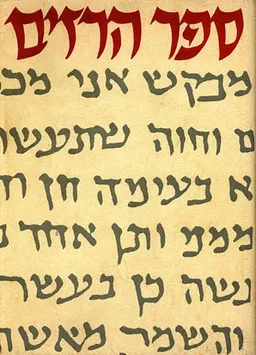 ספר הרזים
מבקש אני מכ
ם וחוה שתעש
א בעימה חן
ממני ותן אחד
נשה כן בעשר
והשמר מאשה